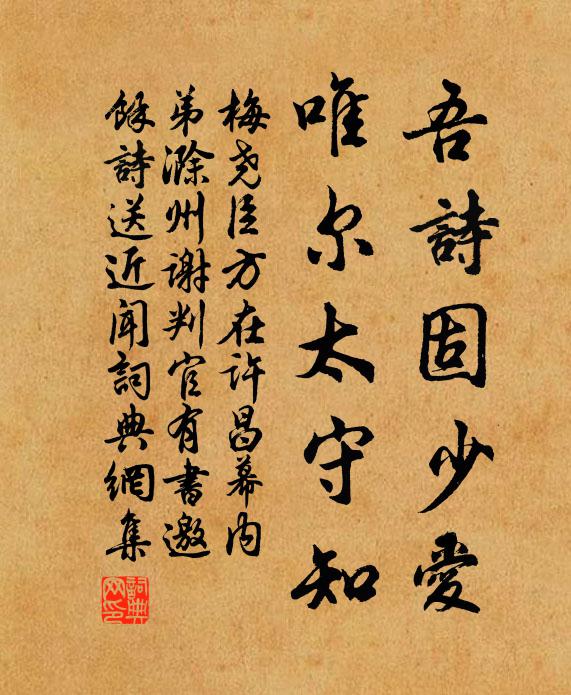 吾詩固少愛
唯尔太守知
梅尧臣方在许昌幕内
弟滁州谢判官有書邀
餘詩送近闻詞典網集
詞典网印